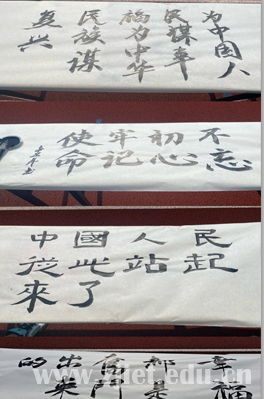 为中国人
民谋幸
福为中华
民族谋
复兴
不忘
初心
牢记
使命
中國人民
從此站起
來了
幸福
都是
奋鬥
出来
的